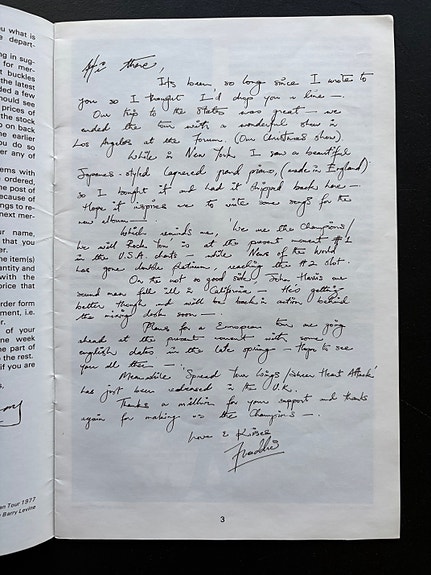 u what is
depart-
ng in sug-
for mer-
buckles
the latest
ded a few
hould see
prices of
the stock
o on back
e earlier
u do so
er any of
ems with
ordered,
e post of
ecause of
ngs to re-
next mer-
ur name,
that you
er.
he item(s)
antity and
with the
price that
rder form
ment, i.e.
r.
of your
ne week
e part of
o the rest.
if you are
s,
an Tour 1977
Barry Levine
Hi there,
Its been so long since I wrote to
you so I thought I'd drop you a line —.
Our trip to the States was great — we
ended the tour with a wonderful show in
Los Angeles at the Forum (Our Christmas Show)
While in New York I saw a beautiful
Japanese-styled laquered grand piano, (made in England)
so I bought it and had it shipped back here —.
Hope it inspires me to write some songs for the
new album —.
Which reminds me, 'We are the Champions/
We will Rock You' is at the present moment #1
in the U.S.A. charts — while 'News of the World'
has gone double platinum, reaching the #2 slot.
On the not so good side, John Harris our
sound man fell ill in California — He's getting
better though and will be back in action behind
the mixing desk soon —.
Plans for a European tour are going
ahead at the present moment with some
english dates in the late spring — Hope to see
you all there —.
Meanwhile 'Spread Your Wings/Sheer Heart Attack'
has just been released in the U.K.
Thanks a million for your support and thanks
again for making us the Champions —.
Love & Kisses
Freddie
3